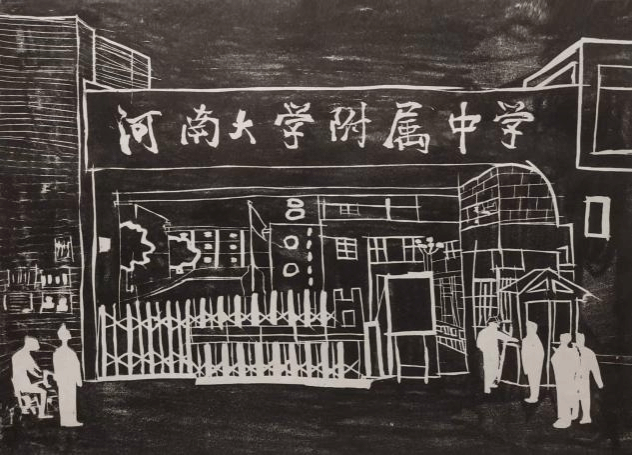 河南大学附属中学